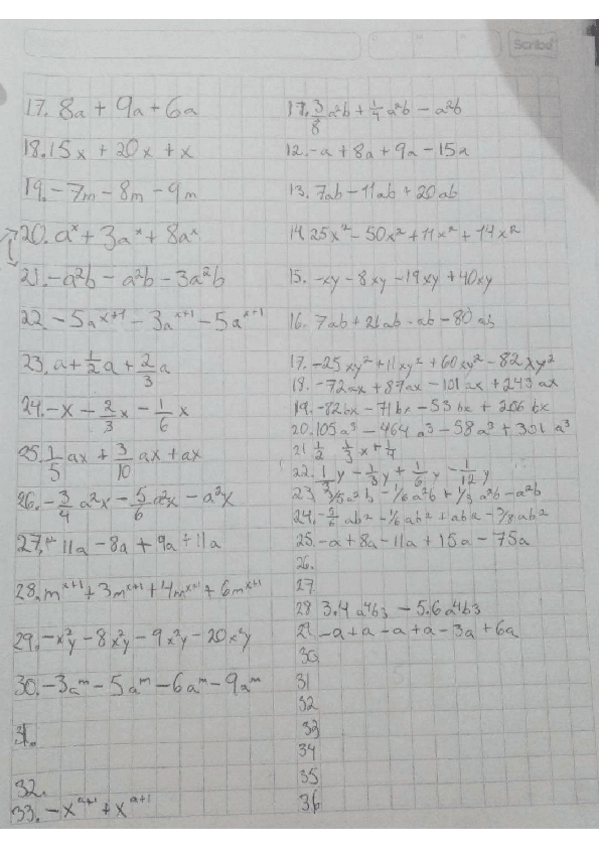 Scribe
17. 8a + 9a + 6a
18. 15x + 20x + x
19. -7m - 8m - 9m
20. aˣ + 3aˣ + 8aˣ
21. -a²b - a²b - 3a²b
22. -5aˣ⁺¹ - 3aˣ⁺¹ - 5aˣ⁺¹
23. a + 1/2 a + 2/3 a
24. -x - 2/3 x - 1/6 x
25. 1/5 ax + 3/10 ax + ax
26. -3/4 a²x - 5/6 a²x - a²x
27. 11a - 8a + 9a + 11a
28. mˣ⁺¹ + 3mˣ⁺¹ + 4mˣ⁺¹ + 6mˣ⁺¹
29. -x²y - 8x²y - 9x²y - 20x²y
30. -3aᵐ - 5aᵐ - 6aᵐ - 9aᵐ
31.
32.
33. -xᵃ⁺¹ + xᵃ⁺¹
3/8 a²b + 1/4 a²b - a²b
12. -a + 8a + 9a - 15a
13. 7ab - 11ab + 20ab
14. 25x² - 50x² + 11x² + 14x²
15. -xy - 8xy - 19xy + 40xy
16. 7ab + 21ab - ab - 80ab
17. -25xy² + 11xy² + 60xy² - 82xy²
18. -72ax + 87ax - 101ax + 243ax
19. -82bx - 71bx - 53bx + 206bx
20. 105a³ - 464a³ - 58a³ + 301a³
21 1/2 1/3 x + 1/4
22. 1/3 y - 1/3 y + 1/6 y - 1/12 y
23. 3/5 a²b - 1/6 a²b + 1/3 a²b - a²b
24. -5/6 ab² - 1/6 ab² + ab² - 3/8 ab²
25. -a + 8a - 11a + 15a - 75a
26.
27
28 3.4 a⁴b3 - 5.6 a⁴b3
29. -a + a - a + a - 3a + 6a
30
31
32
33
34
35
36